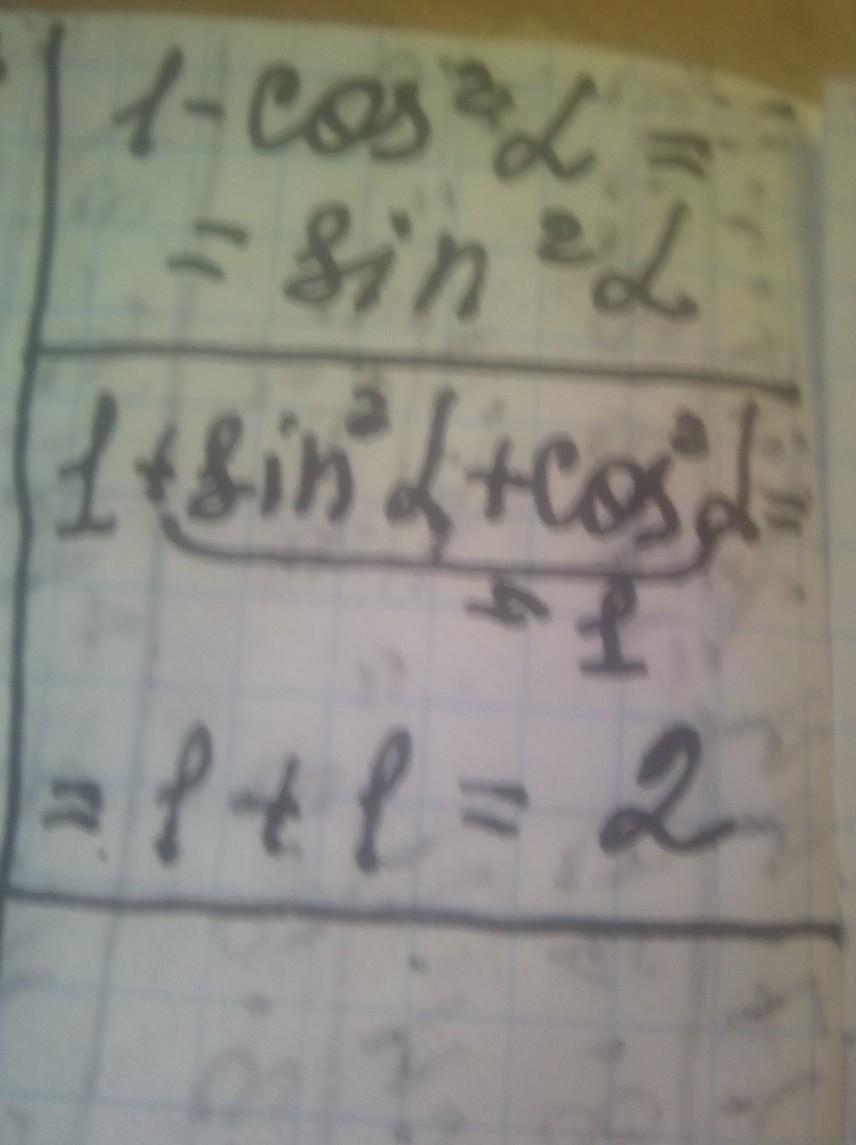 1-cos²α=
=sin²α
1+sin²α+cos²α=
=1
=1+1=2